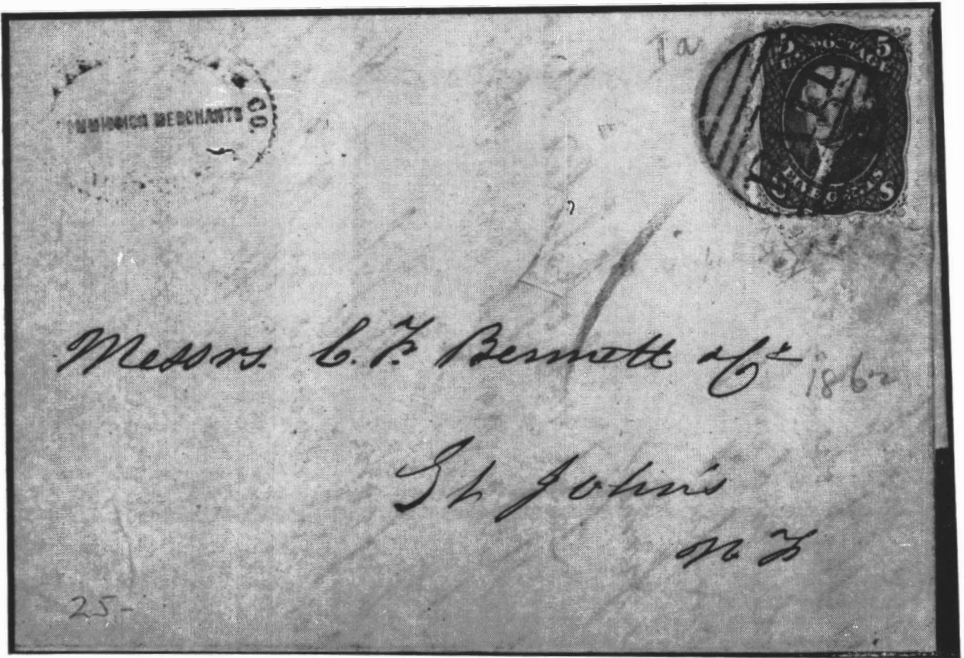 & CO.
COMMISSION MERCHANTS
5 5
U.S. POSTAGE
FIVE CENTS
Messrs. C. F. Bennett & Co
1862
St John's
N F
25-